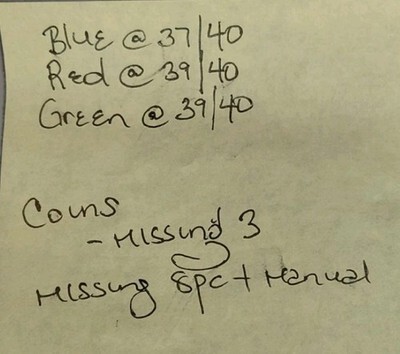 Blue @ 37/40
Red @ 39/40
Green @ 39/40
Coins
- Missing 3
Missing 8pc + Manual